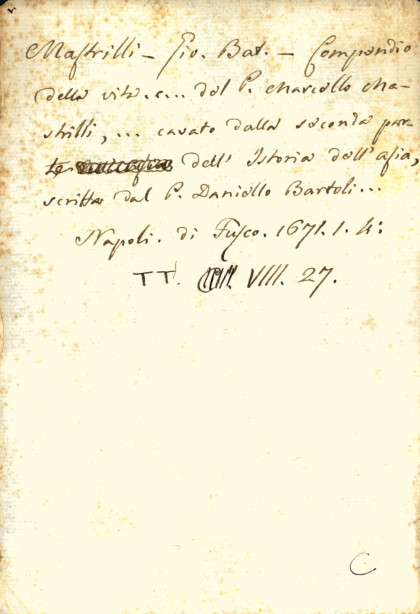 Mastrilli - Gio. Bat. - Compendio
della vita. e... del P. Marcello Ma-
strilli, ... cavato dalla seconda par-
te dell' Istoria dell' asia,
scritta dal P. Daniello Bartoli...
Napoli. di Fusco. 1671. 1. 4:
TT. VIII. 27.
C